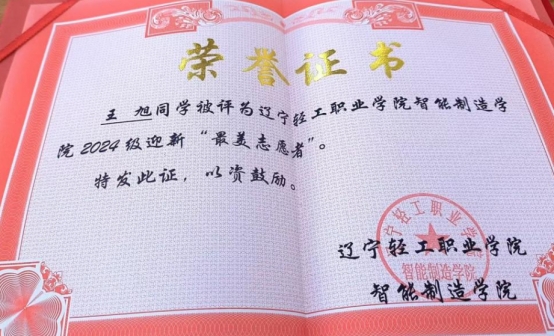 荣誉证书
王 旭同学被评为辽宁轻工职业学院智能制造学
院2024级迎新“最美志愿者”。
特发此证，以资鼓励。
辽宁轻工职业学院
智能制造学院
辽宁轻工职业学院
智能制造学院